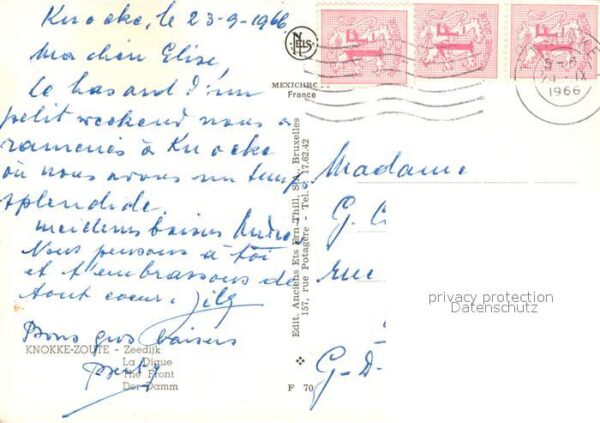 Knocke, le 23-9-1966
Ma chère Elise
le hasard d'un
petit weekend nous a
ramenés à Knocke
où nous avons un temps
splendide.
meilleurs baisers
Nous pensons à toi
et t'embrassons de
tout coeur.
Bons gros baisers
KNOKKE-ZOUTE - Zeedijk
La Digue
The Front
Der Damm
NELS
MEXICHRO
France
Edit. Anciens Ets Ern. Thill, S.A., Bruxelles
157, rue Potagère - Tel. 17.62.42
F 70
1F
1F
1F
5-6
IX
1966
Madame
G.
rue
G-D-
privacy protection
Datenschutz